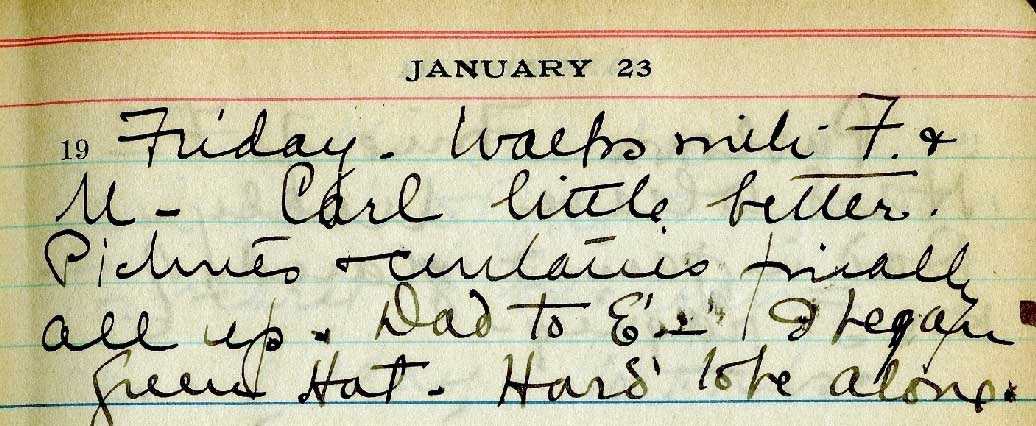 JANUARY 23
19 Friday - Walks with F. &
M - Carl little better.
Pictures & curtains finally
all up. Dad to E's I began
Green Hat - Hard to be alone.